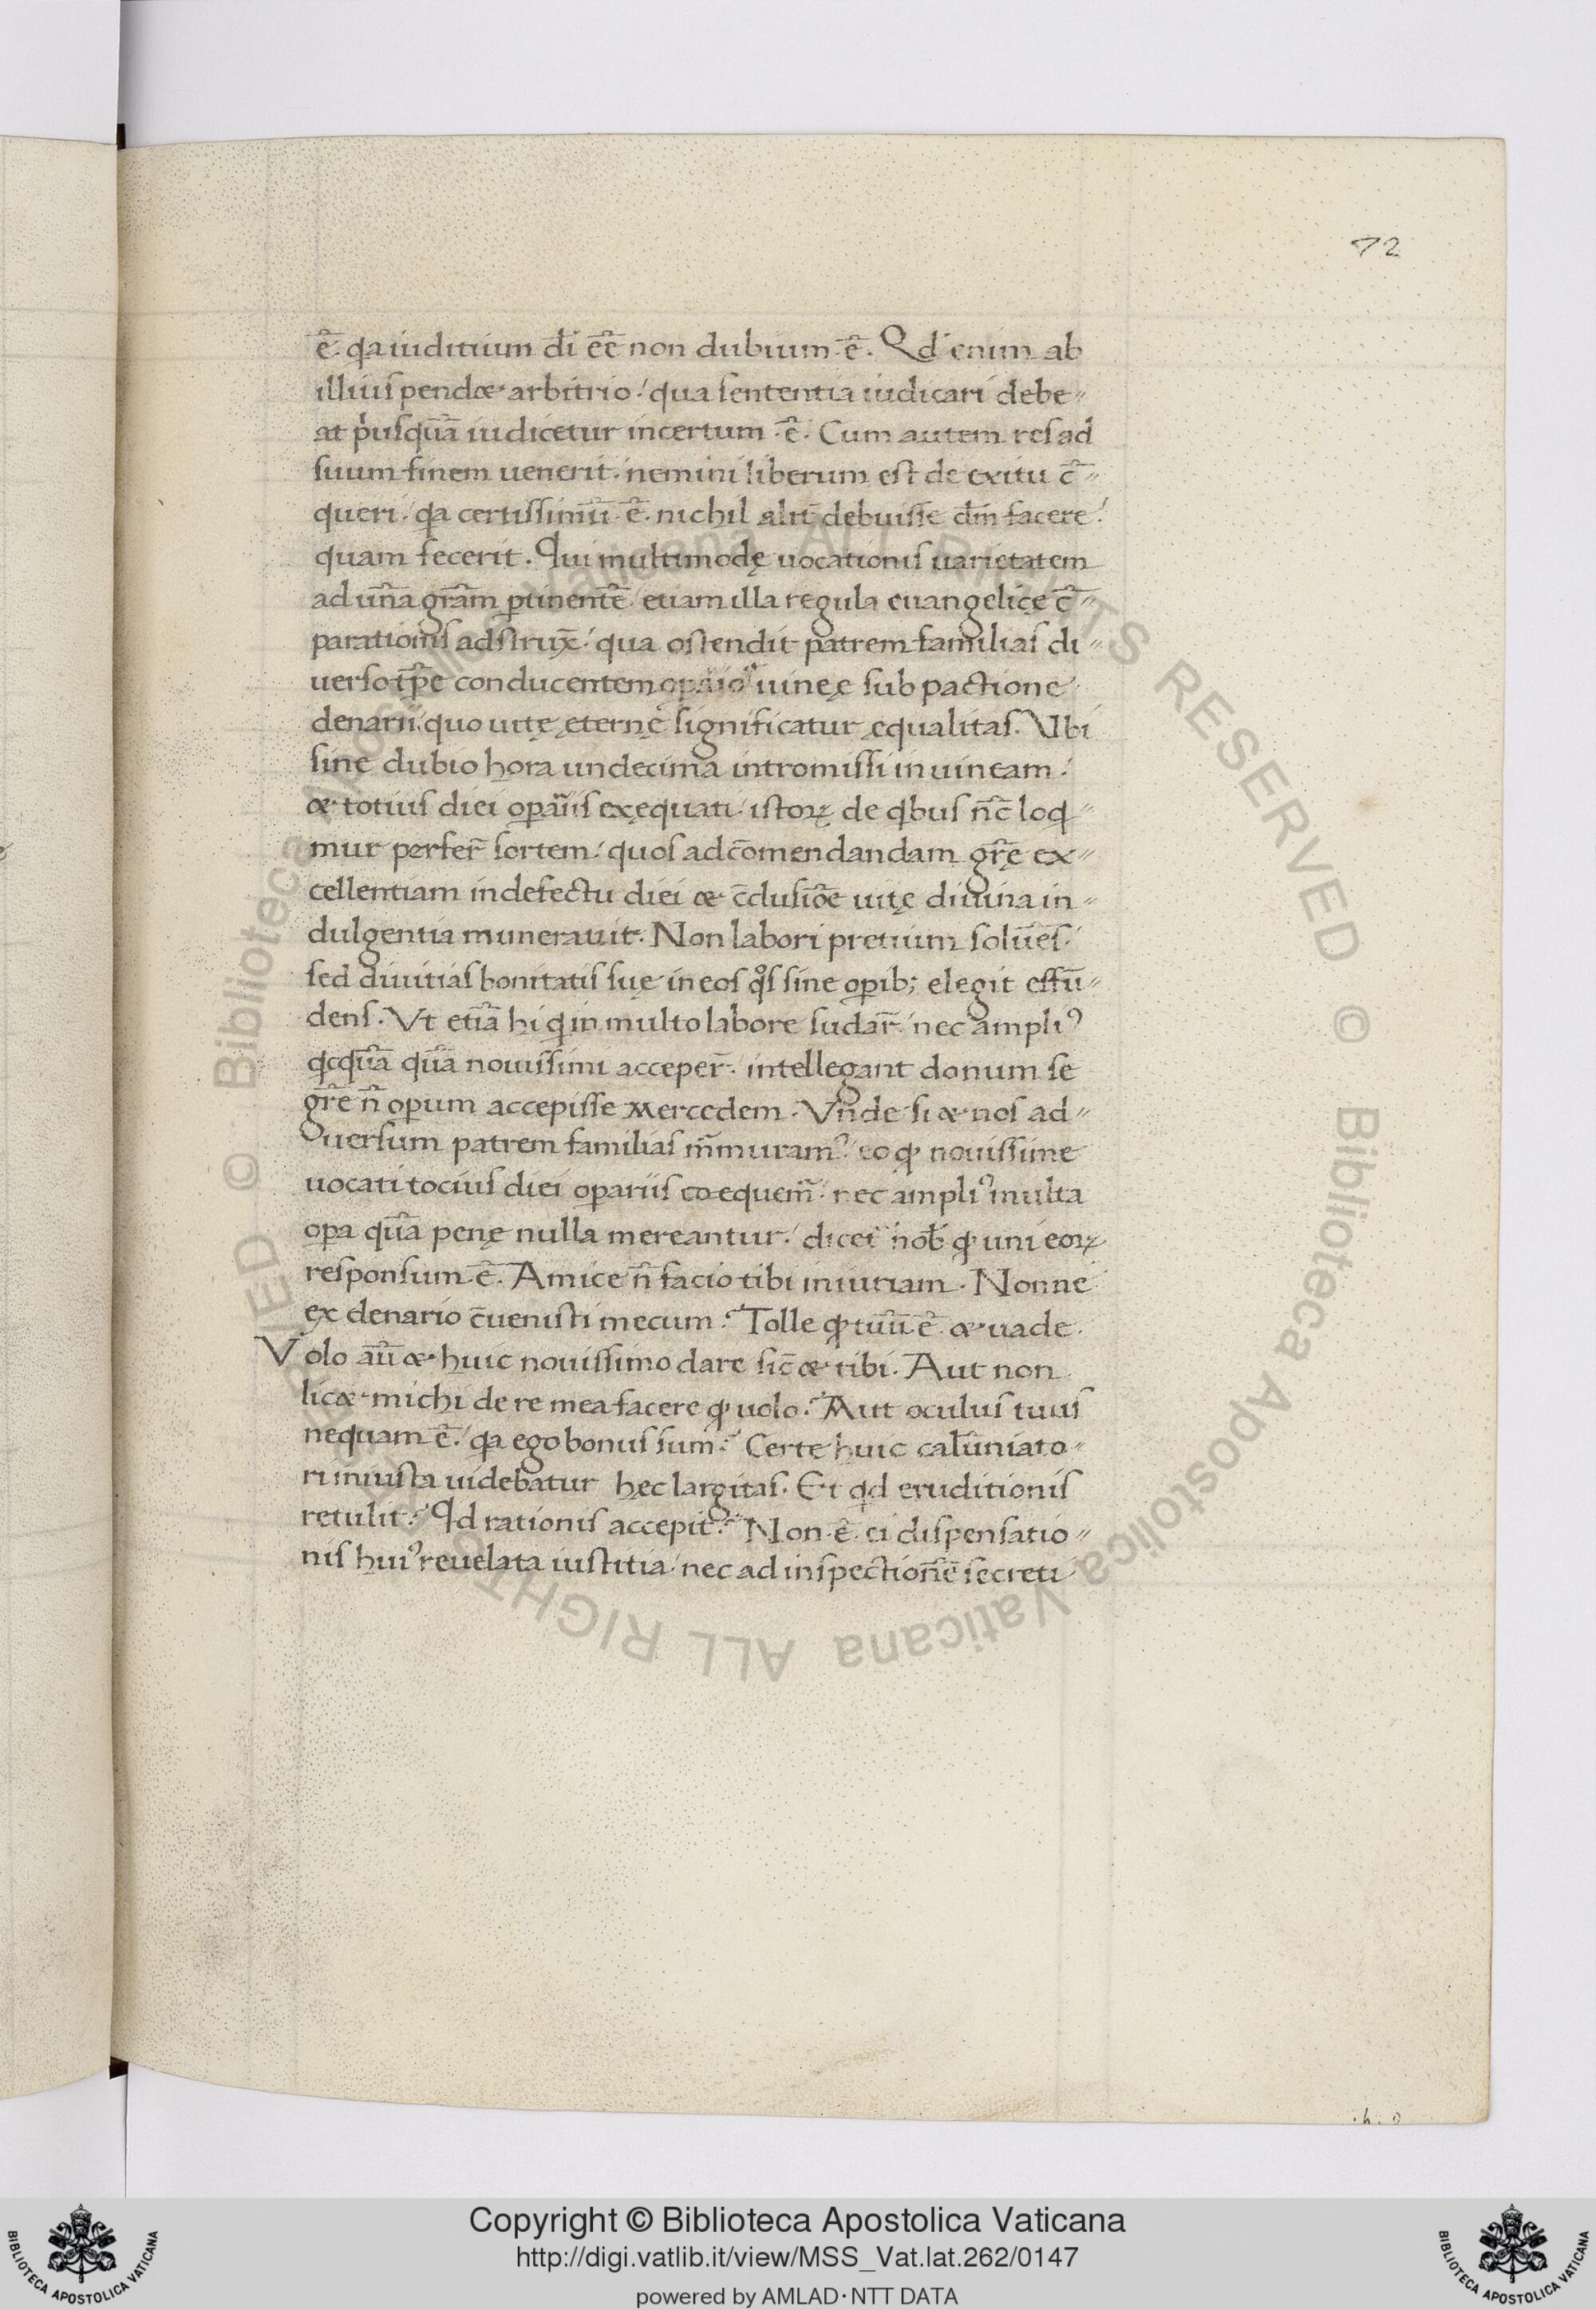 72
ē. qa iuditium dī eē non dubium ē. Qd enim ab
illius pendæ arbitrio / qua sententia iudicari debe〃
at pusquā iudicetur incertum ē. Cum autem res ad
suum finem uenerit. nemini liberum est de exitu c̄〃
queri / qa certissimū ē. nichil alit̄ debuisse dm̄ facere /
quam fecerit. Qui multimodę uocationis uarietatem
ad unā grām ptinentē / etiam illa regula euangelicę c̄〃
parationis adstrux̄ / qua ostendit patrem familias di〃
uerso tp̄e conducentem opaios uineę sub pactione
denarii quo uitę ęternę significatur ęqualitas. Vbi
sine dubio hora undecima intromissi in uineam /
& totius diei opariis exequati / istoꝝ de qbus nc̄ loq〃
mur perfer̄ sortem / quos ad cōmendandam gr̄ę ex〃
cellentiam in defectu diei & c̄clusiōe uitę diuina in〃
dulgentia munerauit. Non labori pretium soluēs /
sed diuitias bonitatis suę in eos qs sine opib; elegit effū〃
dens. Vt etiā hi qi in multo labore sudar̄ / nec ampliꝰ
qcquā quā nouissimi acceper̄. intellegant donum se
gr̄e n̄ opum accepisse mercedem. Vn̄de si & nos ad〃
uersum patrem familias m̄muramꝰ / eo qꝫ nouissime
uocati tocius diei opariis coequem̄ / nec ampliꝰ multa
opa quā penę nulla mereantur / dicet nob̄ qꝫ uni eoꝝ
responsum ē. Amice n̄ facio tibi iniuriam. Nonne
ex denario c̄uenisti mecum? Tolle qꝫ tuū ē & uade.
Volo aū & huic nouissimo dare sic̄ & tibi. Aut non
licæ michi de re mea facere qꝫ uolo? Aut oculus tuus
nequam ē / qa ego bonus sum? Certe huic calūniato〃
ri iniusta uidebatur hęc largitas. Et qd eruditionis
retulit? Qd rationis accepit? Non ē ei dispensatio〃
nis huiꝰ reuelata iustitia / nec ad inspectionē secreti
Copyright © Biblioteca Apostolica Vaticana
http://digi.vatlib.it/view/MSS_Vat.lat.262/0147
powered by AMLAD·NTT DATA